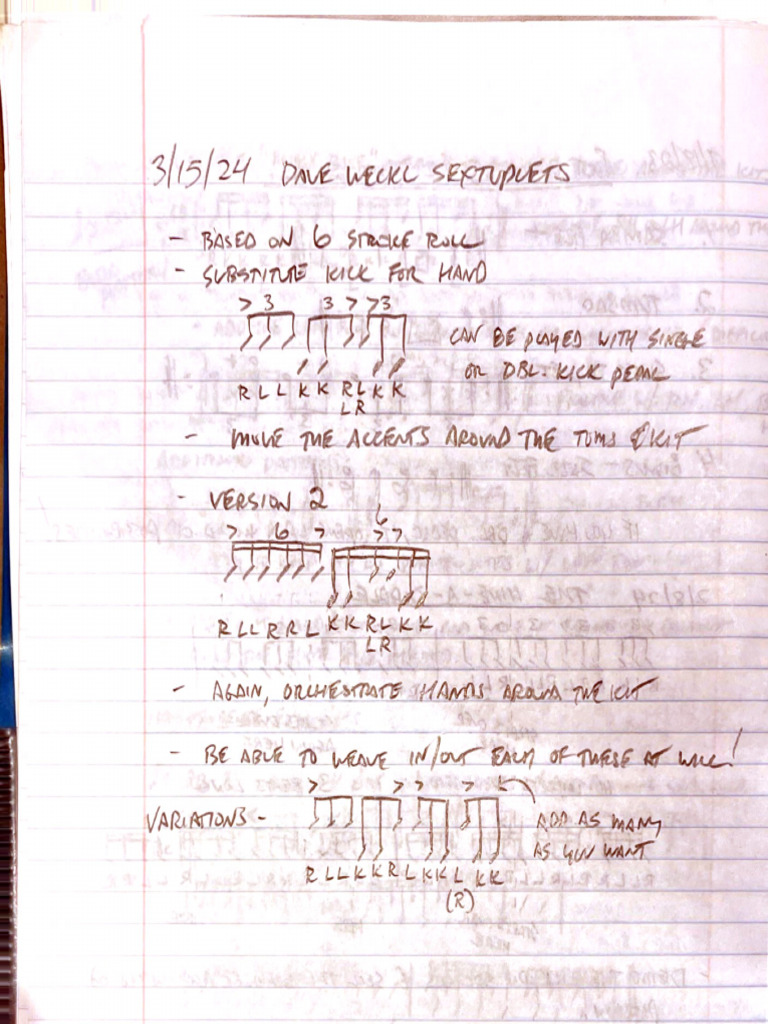 3/15/24 DAVE WECKL SEXTUPLETS
- BASED ON 6 STROKE ROLL
- SUBSTITUTE KICK FOR HAND
> 3 3 > > 3
CAN BE PLAYED WITH SINGLE
OR DBL. KICK PEDAL
R L L K K R L K K
L R
- MOVE THE ACCENTS AROUND THE TOMS & KIT
- VERSION 2
> 6 > 6 > >
R L L R R L K K R L K K
L R
- AGAIN, ORCHESTRATE HANDS AROUND THE KIT
- BE ABLE TO WEAVE IN/OUT EACH OF THESE AT WILL!
> > > >
VARIATIONS -
ADD AS MANY
AS YOU WANT
R L L K K R L K K L K K
(R)